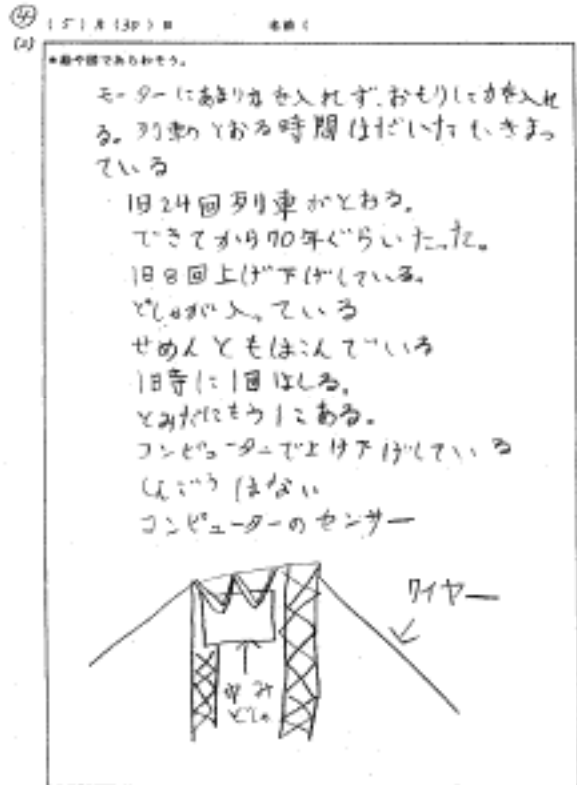 ④ (5)月(30)日 名前(
(2)
*絵や図であらわそう。
モーターにあまり力を入れず、おもりに力を入れ
る。列車のとおる時間はだいたい、きまっ
ている
1日24回列車がとおる。
できてから70年ぐらいたった。
1日8回上げ下げしている。
どしゃが入っている
せめんともはこんでいる
1時に1回はしる。
とみだにもう1こある。
コンピューターで上げ下げしている
しんごうはない
コンピューターのセンサー
ワイヤー
どしゃ